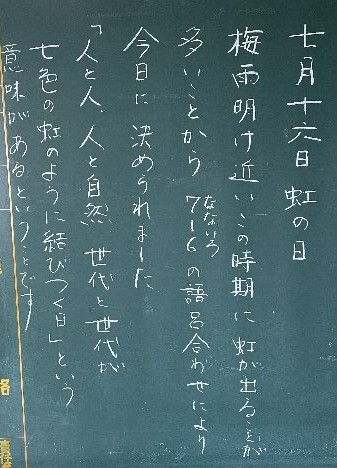 七月十六日 虹の日
梅雨明け近いこの時期に虹が出ることが
多いことから 716の語呂合わせにより
なないろ
今日に決められました
「人と人、人と自然、世代と世代が
七色の虹のように結びつく日」という
意味があるということです